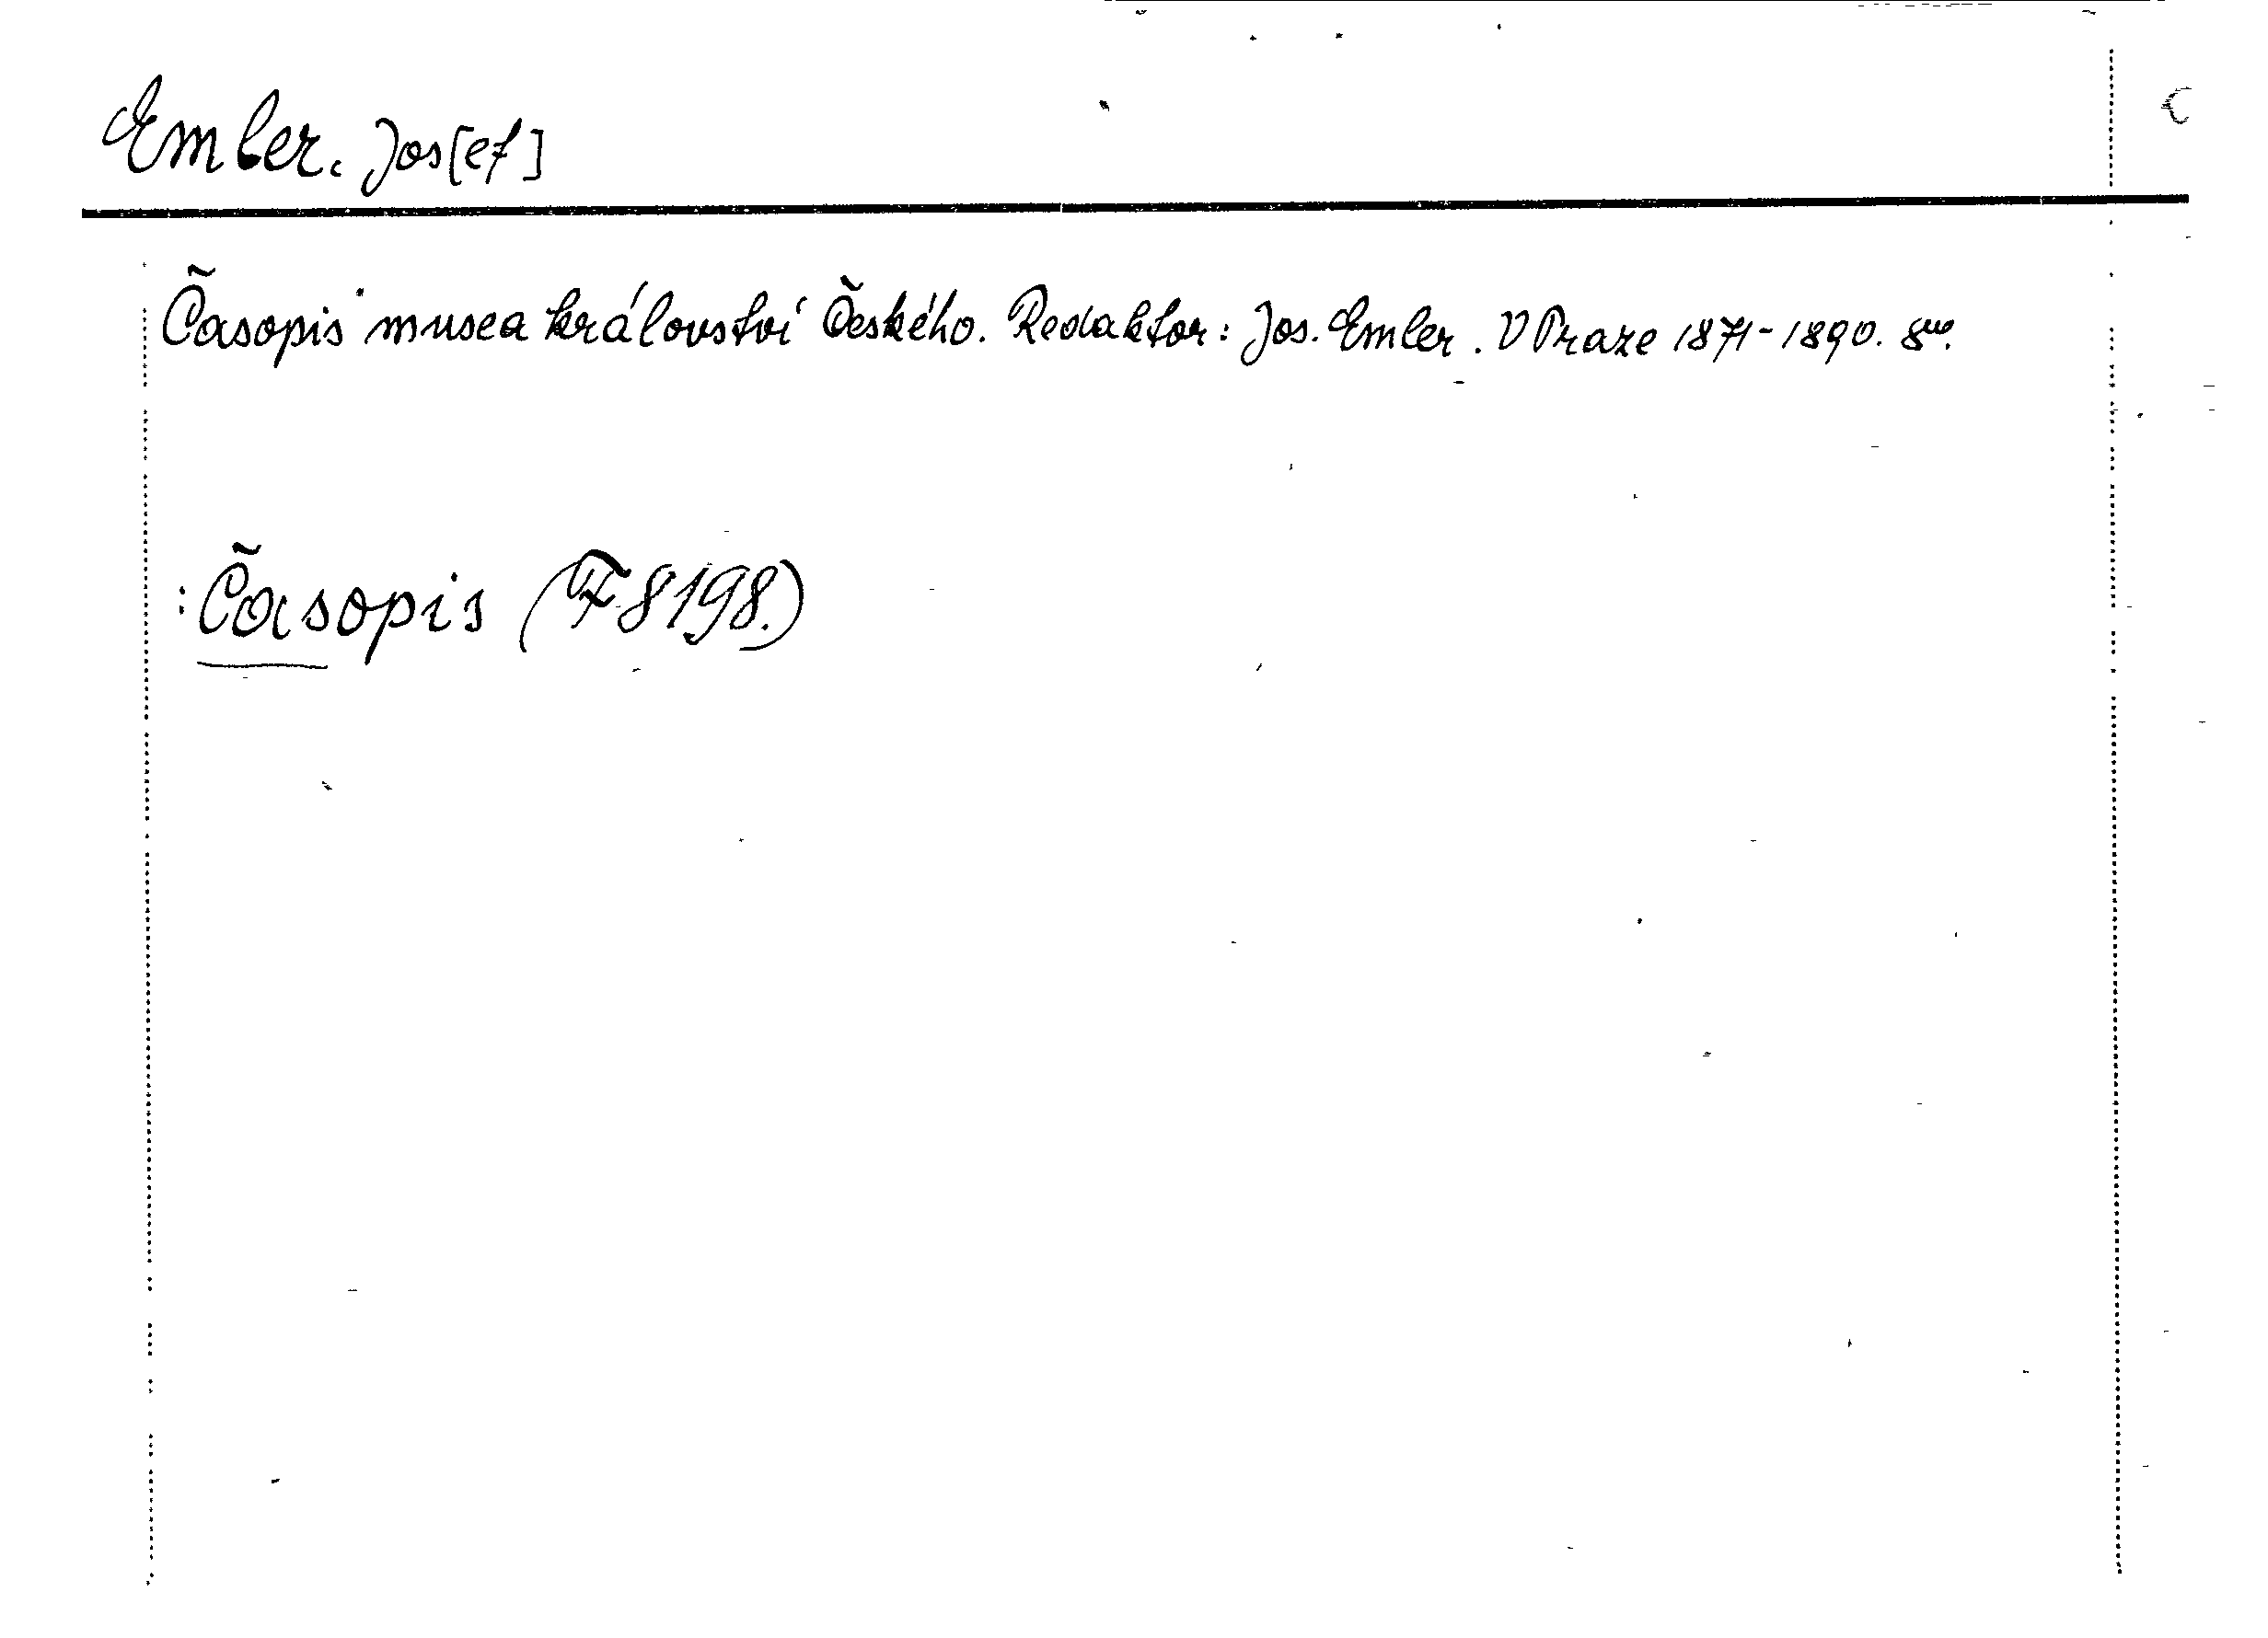 Emler. Jos[ef]
Časopis musea království Českého. Redaktor: Jos. Emler. V Praze 1871-1890. 8vo.
:Časopis (F 8198.)